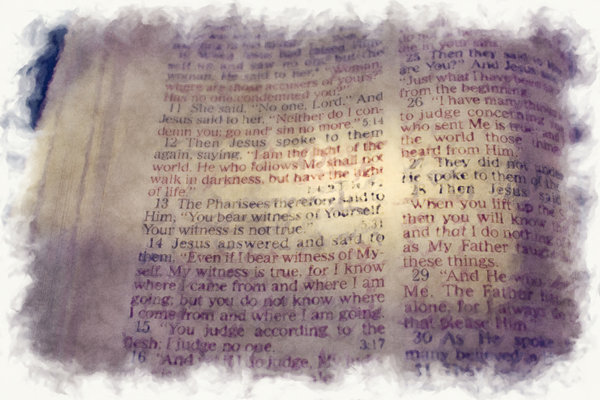 self up, and saw no one but the
woman, He said to her, "Woman,
where are those accusers of yours?
Has no one condemned you?"
11 She said, "No one, Lord." And
Jesus said to her, "Neither do I con-
demn you; go and sin no more." 5:14
12 Then Jesus spoke to them
again, saying, "I am the light of the
world. He who follows Me shall not
walk in darkness, but have the light
of life."
13 The Pharisees therefore said to
Him, "You bear witness of Yourself
Your witness is not true." 5:31
14 Jesus answered and said to
them, "Even if I bear witness of My
self, My witness is true, for I know
where I came from and where I am
going; but you do not know where
I come from and where I am going.
15 "You judge according to the
flesh; I judge no one. 3:17
16 "And yet if I do judge, My
die in your sins."
25 Then they said to
are You?" And Jesus
"Just what I have
from the beginning
26 "I have many things
to judge concerning
who sent Me is true; and
the world those
heard from Him."
27 They did not
He spoke to them of the
28 Then Jesus said
"When you lift up the
then you will know
and that I do nothing
as My Father
these things.
29 "And He who
Me. The Father
alone, for I always do
that please Him."
30 As He spoke
many believed in
31